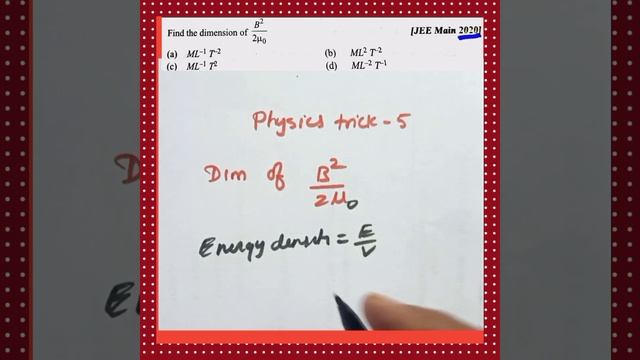 Find the dimension of B²/2μ₀ [JEE Main 2020]
(a) ML⁻¹ T⁻² (b) ML² T⁻²
(c) ML⁻¹ T² (d) ML⁻² T⁻¹
Physics trick - 5
Dim of B²/2μ₀
Energy density = E/V